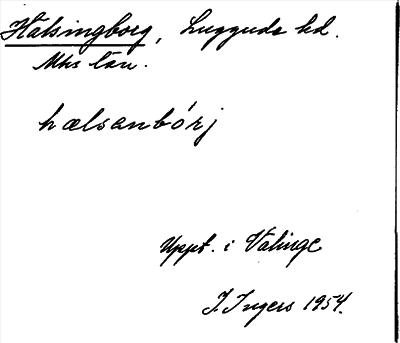 Hälsingborg, Luggude hd.
Mhs län.
hælsanbórj
Uppt. i Välinge
I. Ingers 1954.